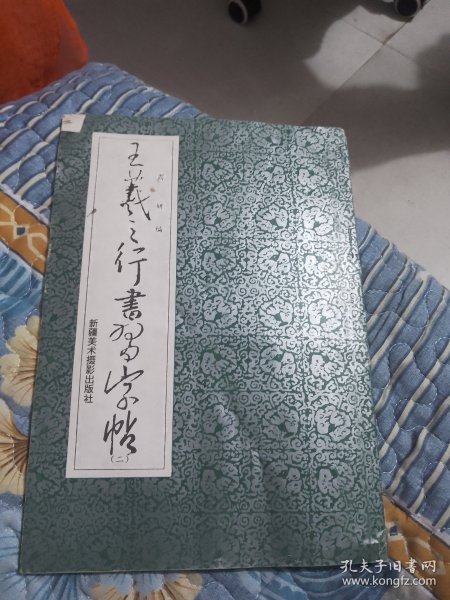 王羲之行書習字帖
(二)
编
新疆美术摄影出版社
孔夫子旧书网
www.kongfz.com